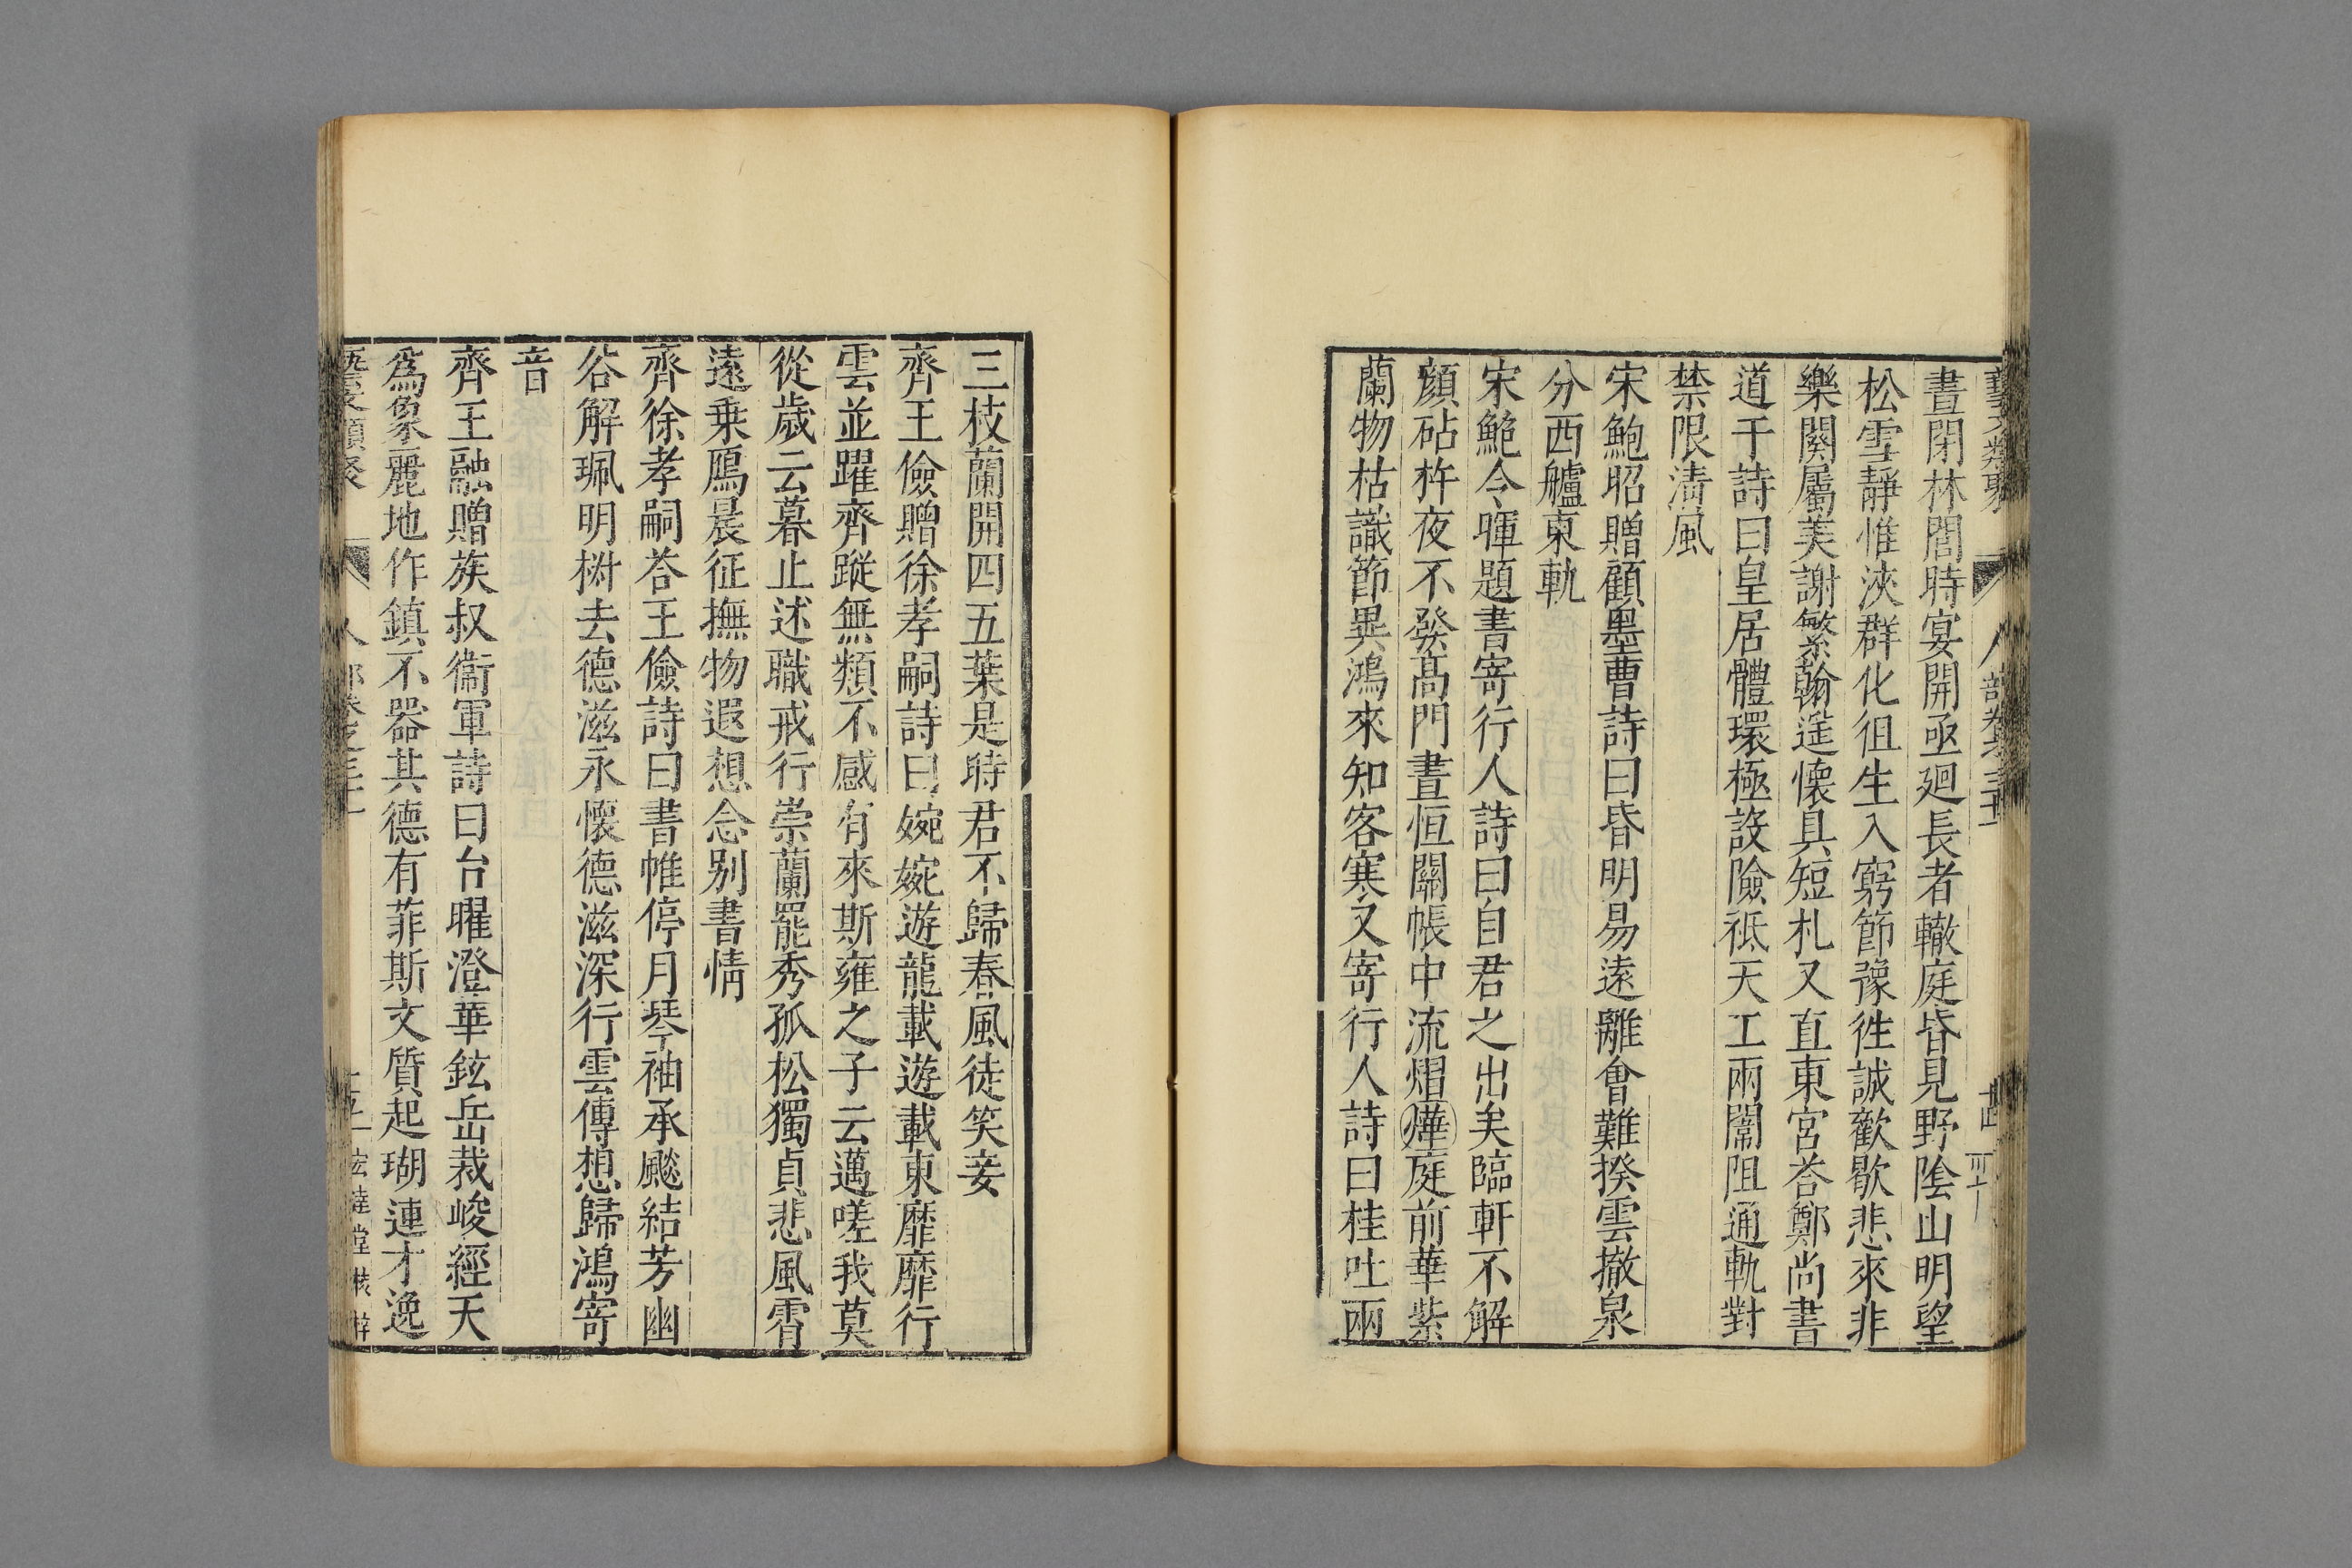 晝閉林間時宴開亟廻長者轍庭昏見野陰山明望
松雪靜惟浹群化徂生入窮節豫徃誠歡歇悲來非
樂闋屬美謝繁翰遥懐具短札又直東宮荅鄭尚書
道干詩曰皇居體環極設險祗天工兩闈阻通軌對
禁限淸風
宋鮑昭贈顧墨曹詩曰昏明易遠離會難揆雲撤泉
分西艫東軌
宋鮑令暉題書寄行人詩曰自君之出矣臨軒不解
顔砧杵夜不發髙門晝恒關帳中流熠燁庭前華紫
蘭物枯識節異鴻來知客寒又寄行人詩曰桂吐兩
三枝蘭開四五葉是時君不歸春風徒笑妾
齊王儉贈徐孝嗣詩曰婉婉遊龍載遊載東靡靡行
雲並躍齊蹤無類不感有來斯雍之子云邁嗟我莫
從歲云暮止述職戒行崇蘭罷秀孤松獨貞悲風霄
遠乗鴈晨征撫物遐想念别書情
齊徐孝嗣荅王儉詩曰書帷停月琴袖承飈結芳幽
谷解珮明椒去德滋永懷德滋深行雲傳想歸鴻寄
音
齊王融贈族叔衞軍詩曰台曜澄華鉉岳裁峻經天
爲象麗地作鎮不器其德有菲斯文質起瑚連才逸